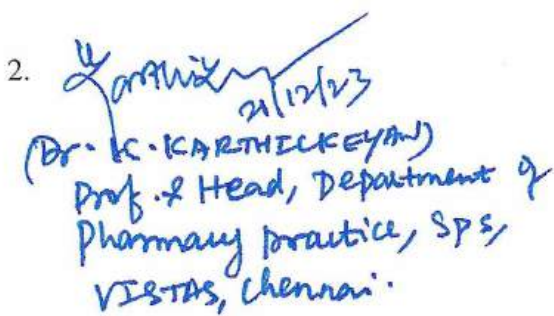 2. Karthik
21/12/23
(Dr. K. KARTHICKEYAN)
Prof. & Head, Department of
Pharmacy practice, SPS,
VISTAS, Chennai.